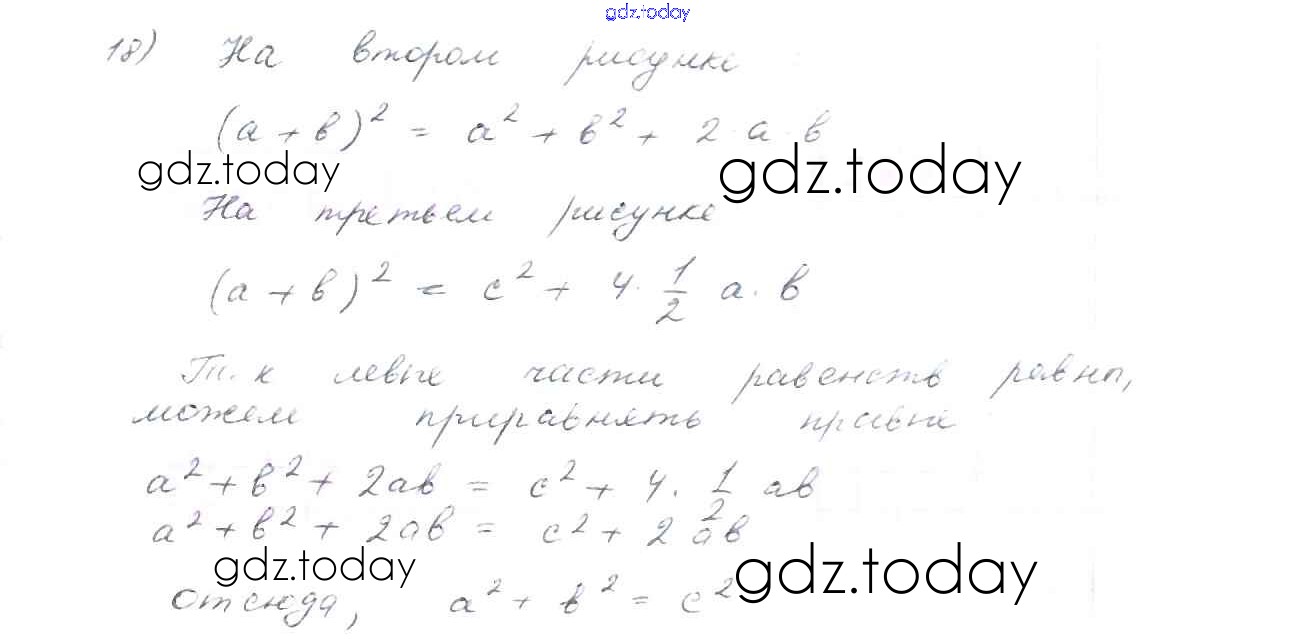 gdz.today
18) На втором рисунке
(a + b)² = a² + b² + 2·a·b
gdz.today gdz.today
На третьем рисунке
(a + b)² = c² + 4·1/2 a·b
Т.к левые части равенств равны,
можем приравнять правые
a² + b² + 2ab = c² + 4·1/2 ab
a² + b² + 2ab = c² + 2ab
gdz.today gdz.today
Отсюда, a² + b² = c²